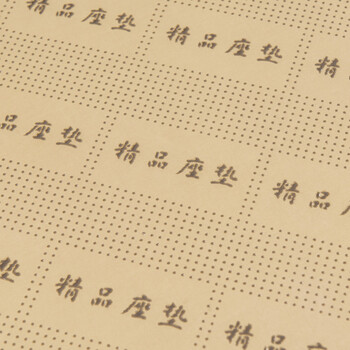 精品座垫
精品座垫
精
品座垫
精品座垫
精品
垫
精品座垫
精品